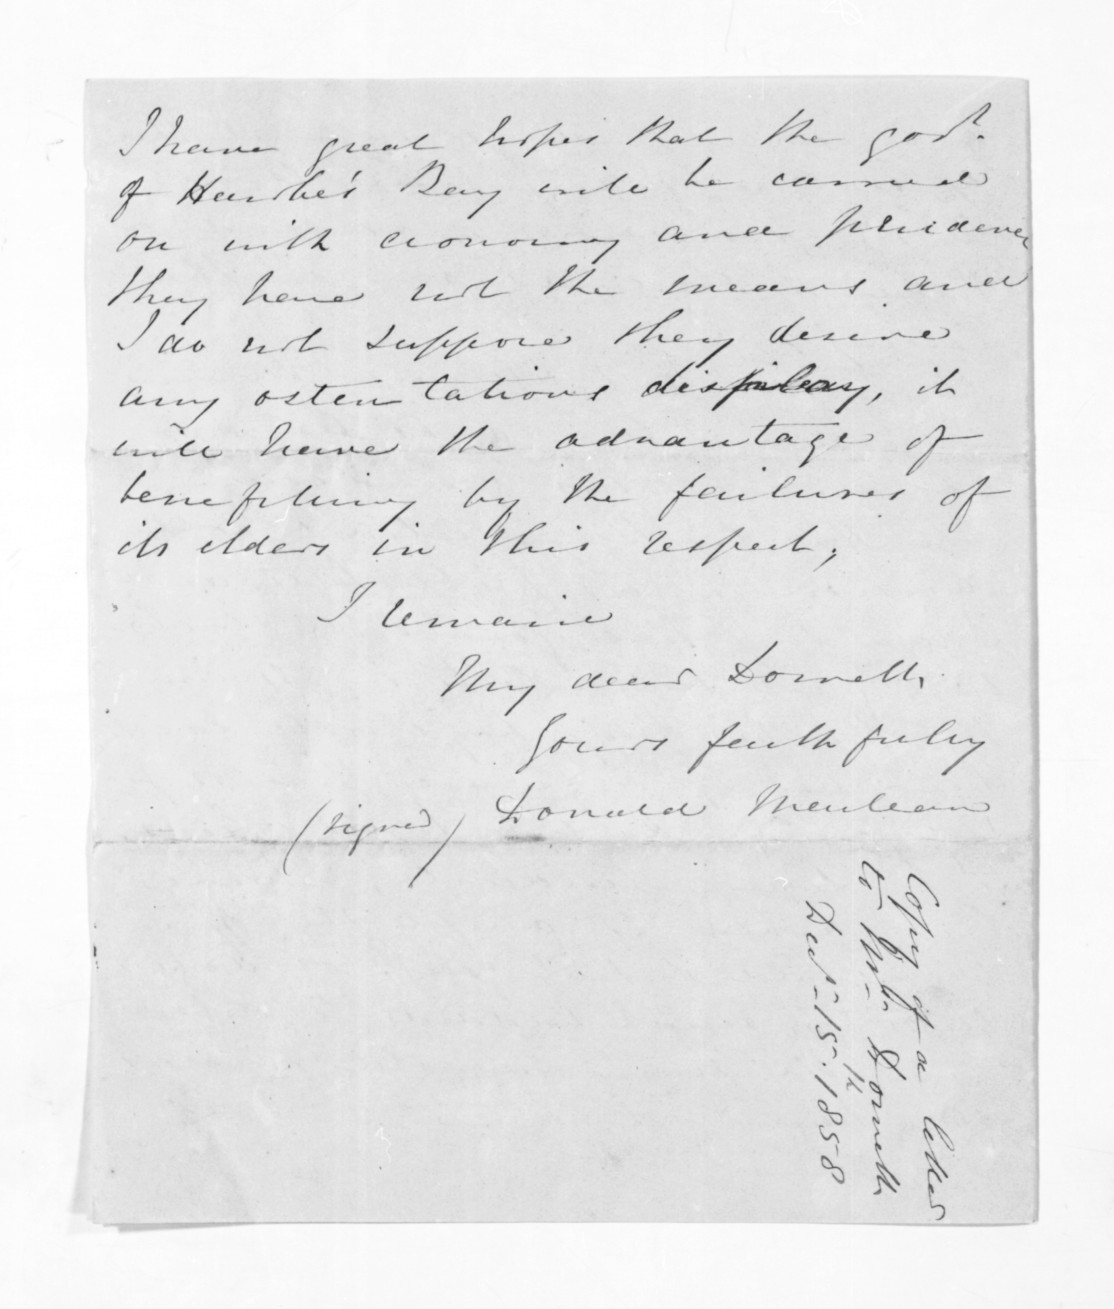 I have great hopes that the govt.
of Hawke's Bay will be carried
on with economy and prudence
they have not the means and
I do not suppose they desire
any ostentatious display, it
will have the advantage of
benefitting by the failures of
its elders in this respect,
I remain
My dear Domett,
Yours faithfully
(signed) Donald McLean
Copy of a letter
to Mr. Domett
Decr. 15th. 1858